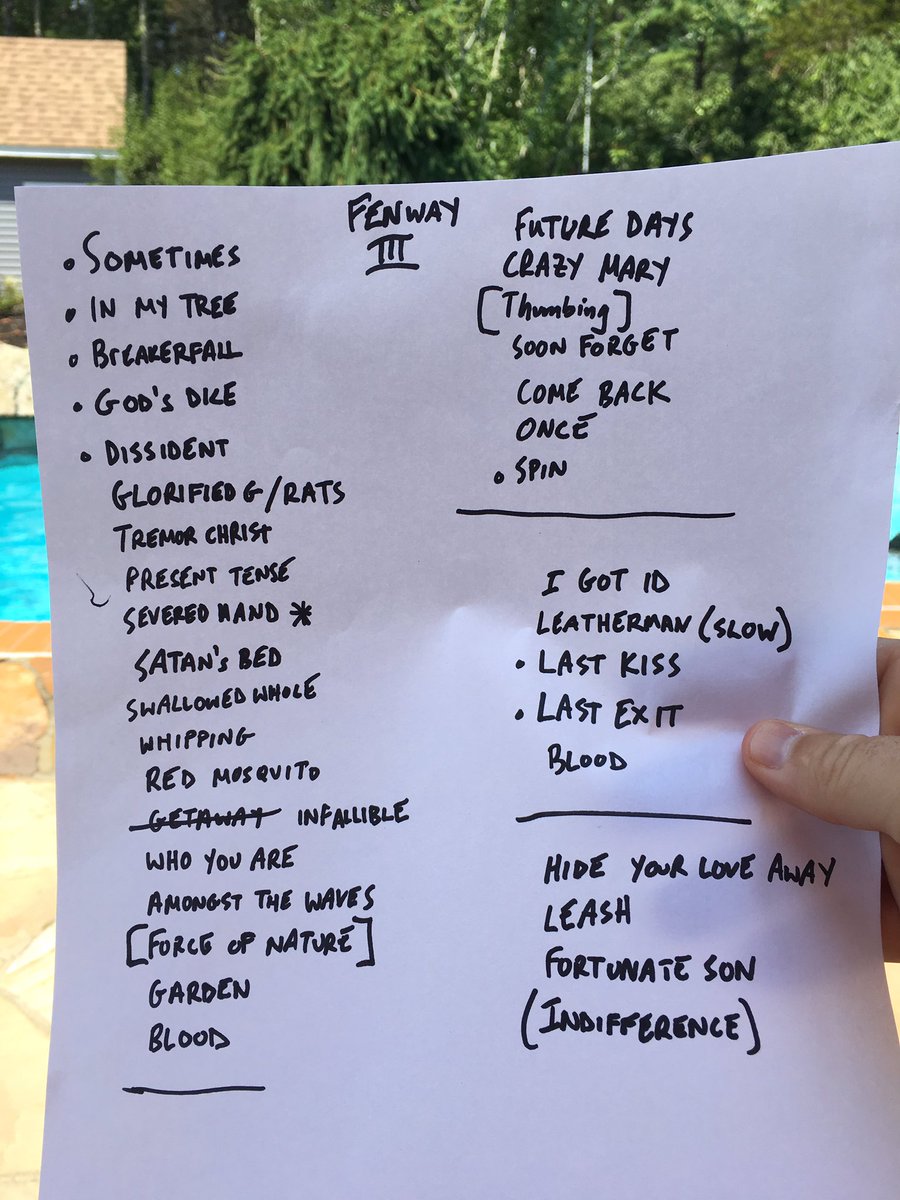 FENWAY
III
• SOMETIMES
• IN MY TREE
• BREAKERFALL
• GOD'S DICE
• DISSIDENT
GLORIFIED G/RATS
TREMOR CHRIST
PRESENT TENSE
SEVERED HAND *
SATAN'S BED
SWALLOWED WHOLE
WHIPPING
RED MOSQUITO
GETAWAY INFALLIBLE
WHO YOU ARE
AMONGST THE WAVES
[FORCE OF NATURE]
GARDEN
BLOOD
FUTURE DAYS
CRAZY MARY
[Thumbing]
SOON FORGET
COME BACK
ONCE
• SPIN
I GOT ID
LEATHERMAN (SLOW)
• LAST KISS
• LAST EXIT
BLOOD
HIDE YOUR LOVE AWAY
LEASH
FORTUNATE SON
(INDIFFERENCE)